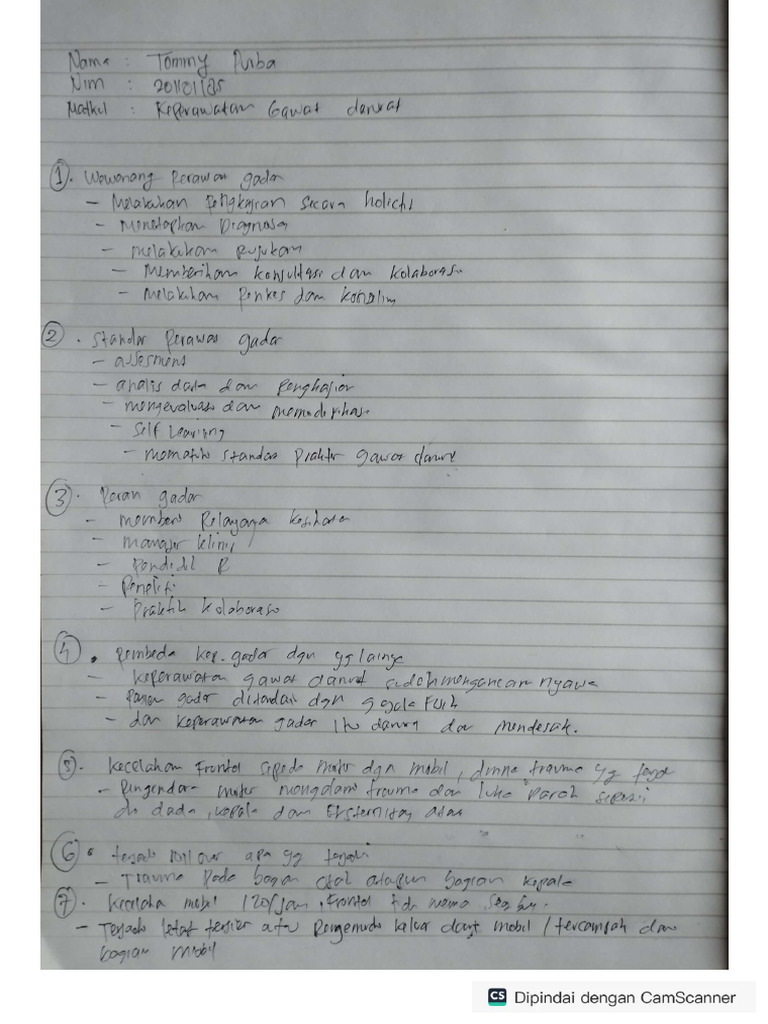 Nama : Tommy Purba
Nim : 20110118
Matkul : Keperawatan Gawat darurat
1. Wewenang Perawat gadar
- Melakukan Pengkajian secara holictis
- Menetapkan Diagnosa
- melakukan rujukan
- Memberikan konsultasi dan kolaborasi
- Melakukan Penkes dan konseling
2. Standar Perawat gadar
- assesment
- analis data dan Pengkajian
- mengevaluasi dan
- Self Learning
- mematuhi standar Praktek gawat darurat
3. Peran gadar
- memberi Pelayanan kesihatan
- manajer klinis
- Pendidik
- Peneliti
- Praktik kolaborasi
4. Pembeda Kep. gadar dgn yg lainya
- Keperawatan gawat darurat sudah mengancam nyawa
- Pasien gadar ditandai dgn gejala
- dan Keperawatan gadar itu darurat dan mendesak.
5. Kecelakaan Frontal sepeda motor dgn mobil, dimna trauma yg terjadi
- Pengendara motor mengalami trauma dan luka Parah seperti
di dada, kepala dan Eksternitas atas
6. terjadi roll over apa yg terjadi
- Trauma Pada bagian otak ataupun bagian kepala
7. Kecelaka mobil 120/jam, frontal tdk
- Terjadi atau Pengemudi keluar dari mobil / tercampak dari
bagian mobil
CS Dipindai dengan CamScanner